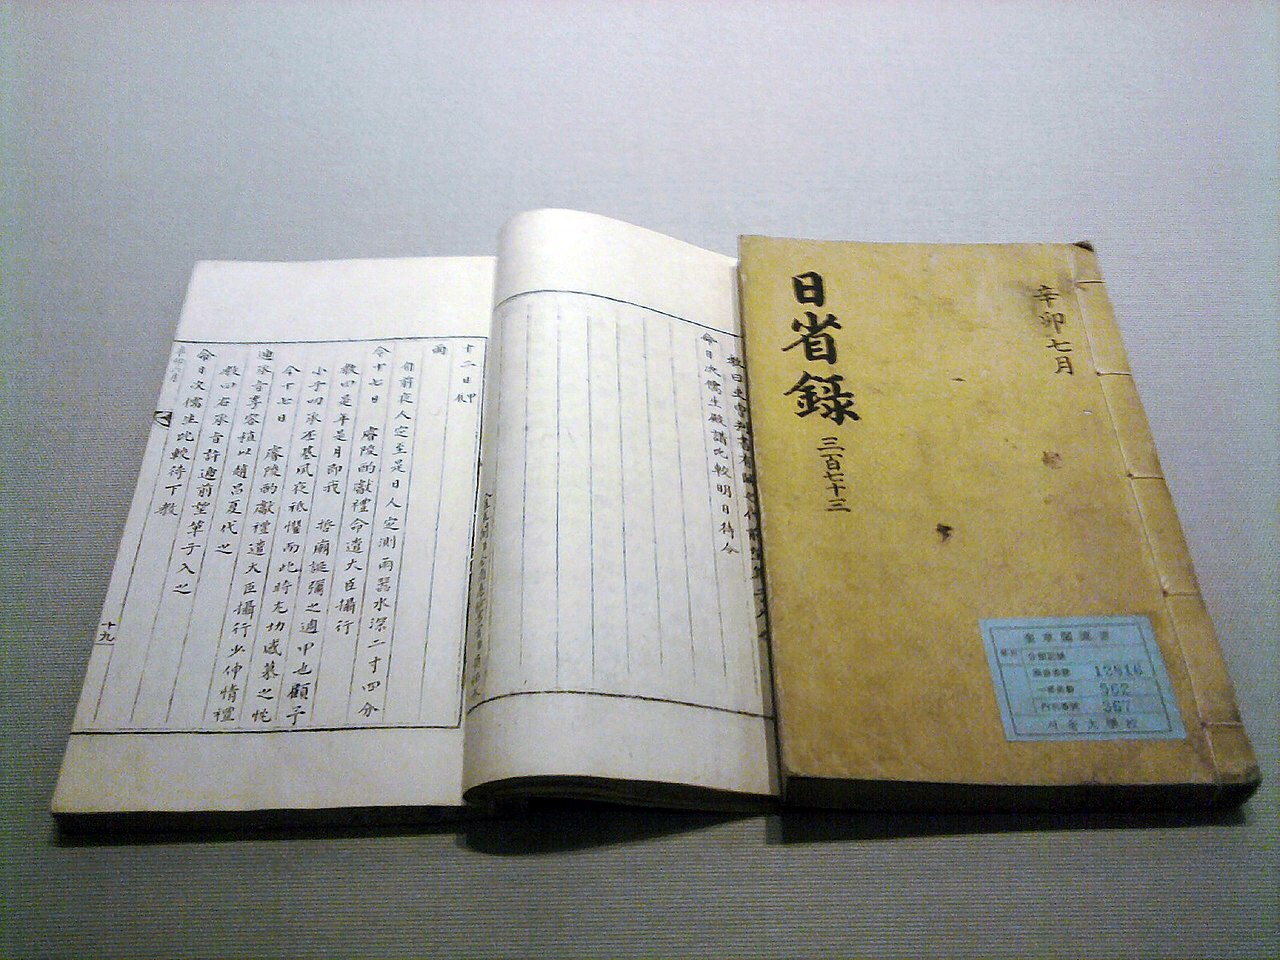 日省錄
三百七十三
辛卯七月
奎章閣圖書
12816
562
367
서울大學校
命日次儒生殿講比較明日待令
十二日甲
雨
自前夜人定至是日人定測雨器水深二寸四分
令十七日 睿陵酌獻禮命遣大臣攝行
教曰是年是月卽我 哲廟誕彌之週甲也顧予
小子叨承丕基夙夜祗懼而此時尤切感慕之忱
今十七日 睿陵酌獻禮遣大臣攝行少伸情禮
遞承旨李容植以趙昌夏代之
教曰右承旨許遞前望單子入之
命日次儒生比較待下教
辛卯六月
十九